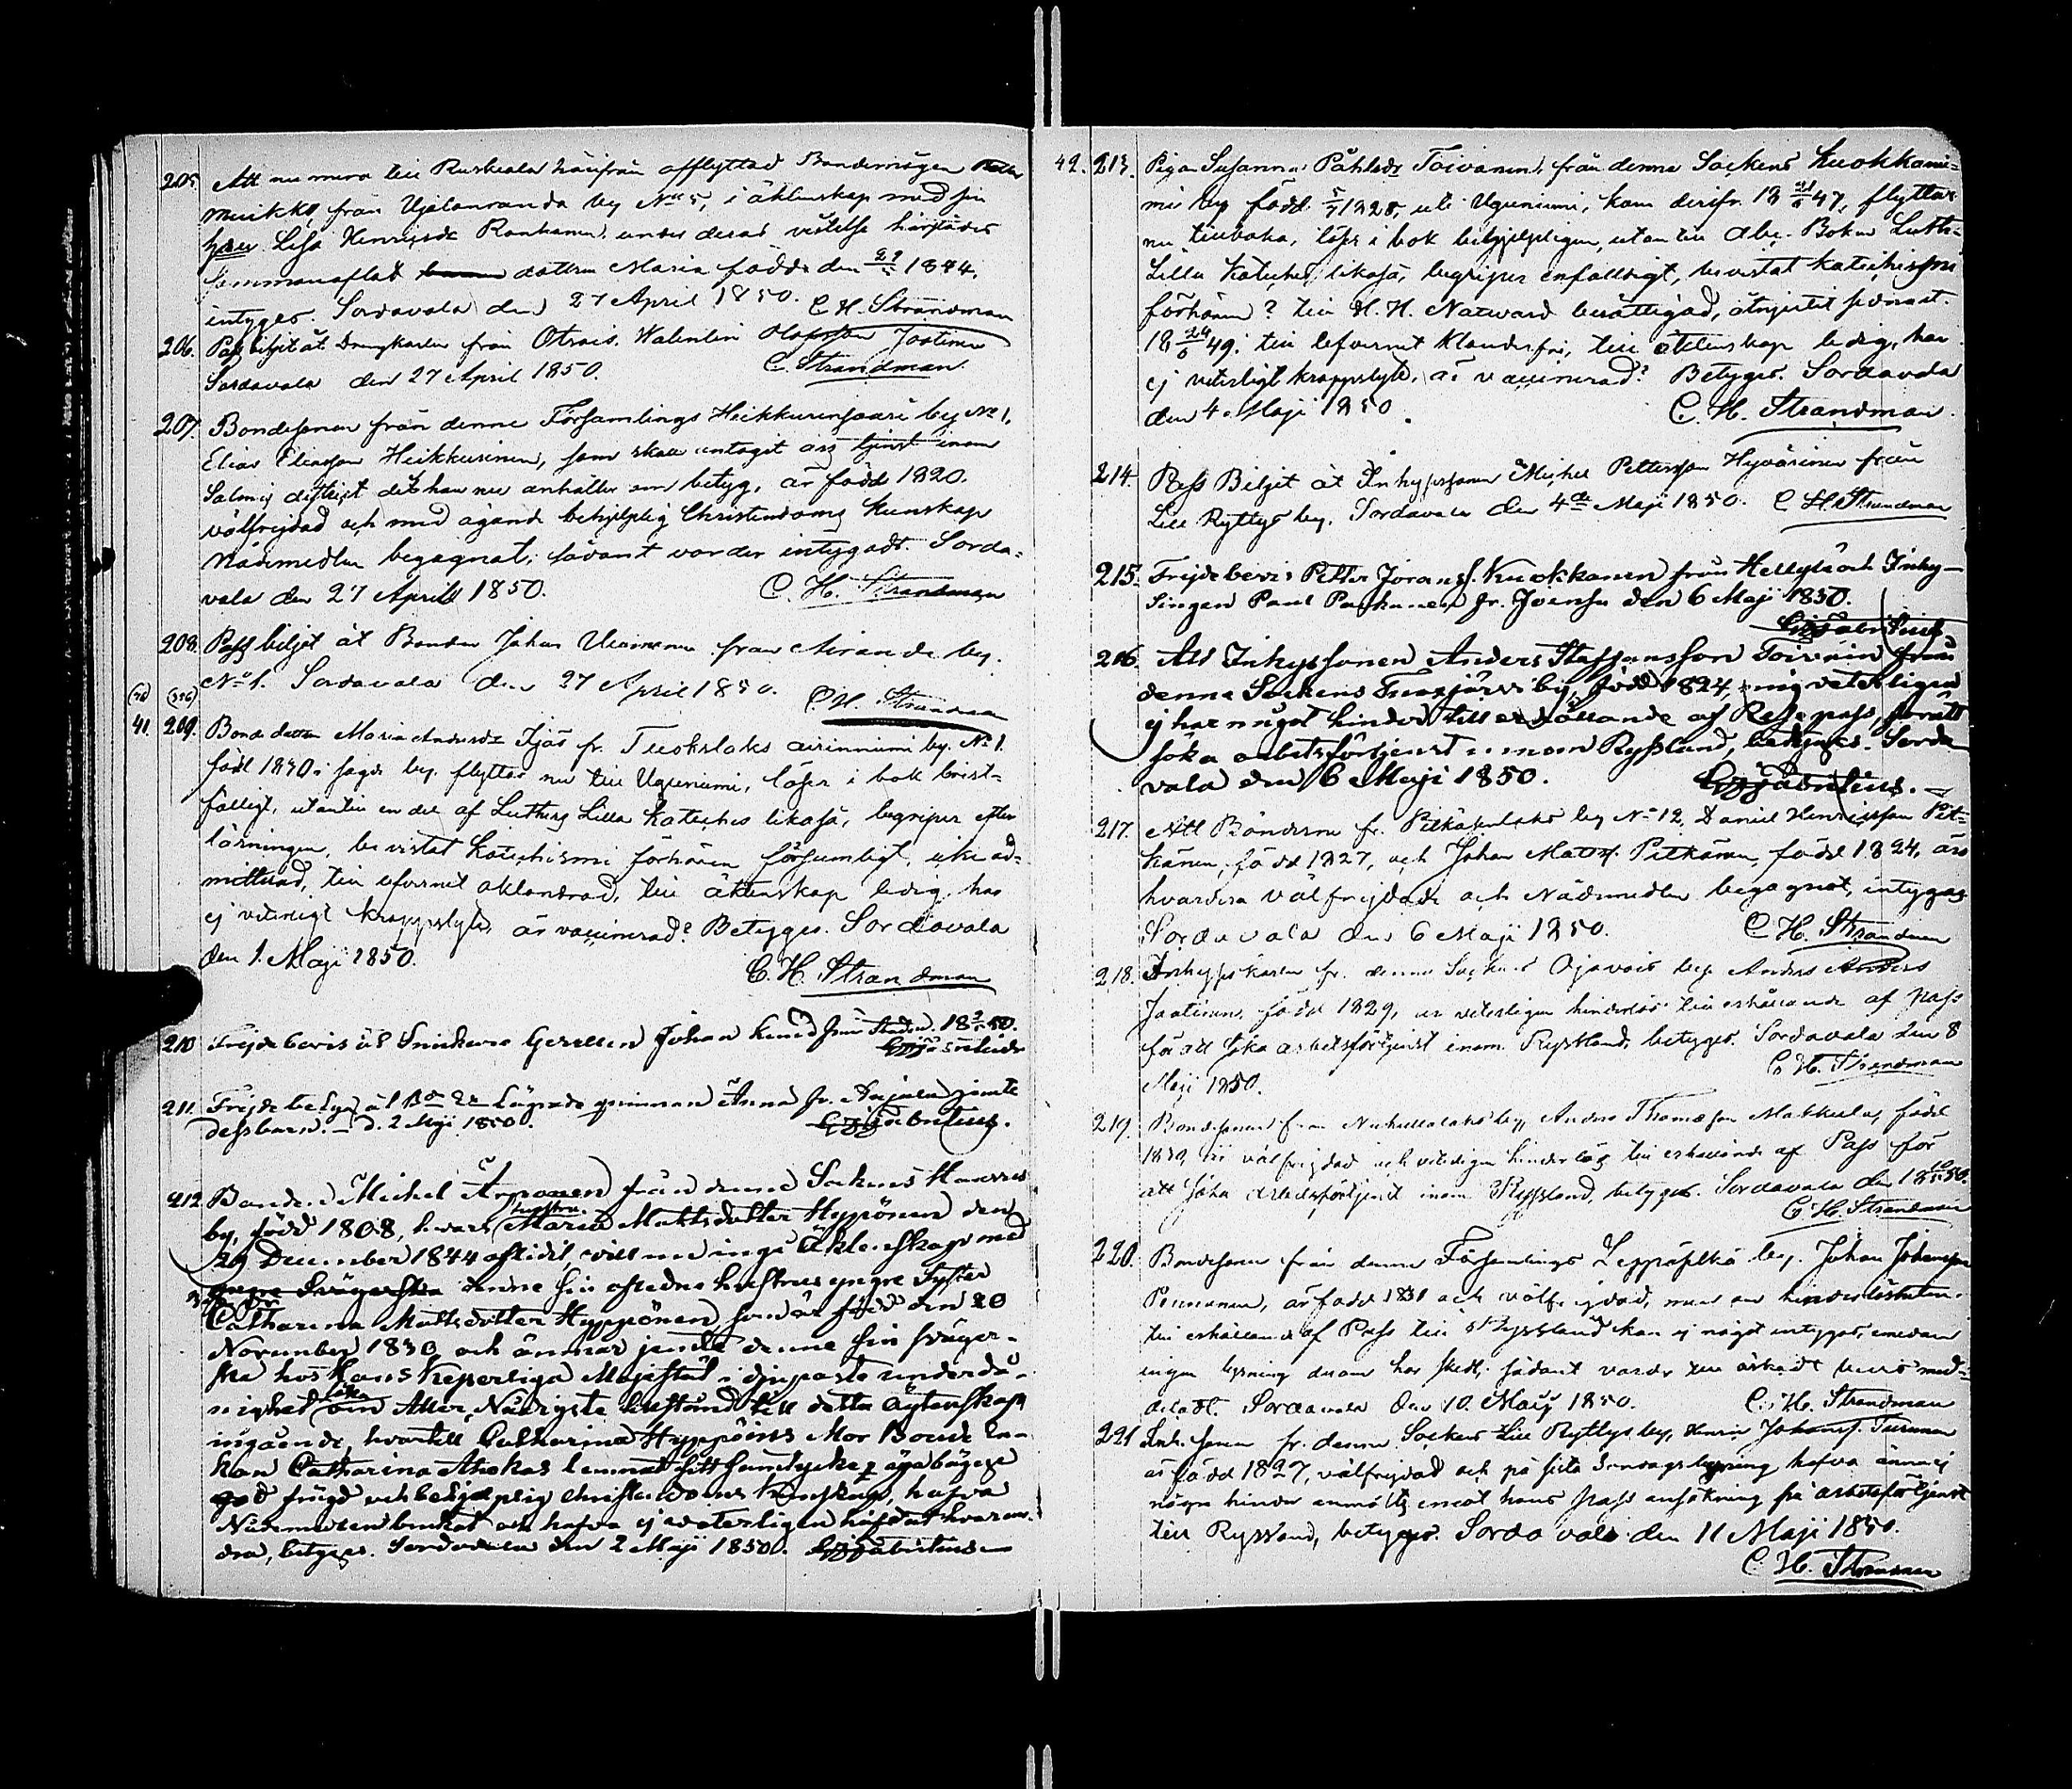 205. Att nu mera till Ruskiala härifrån afflyttad Bondemågen
Muikku, från Ujalanranda by No 5, i äktenskap med sin
hustru Lisa Henricsdr Rankanen, under deras vistelse härstädes
sammanaflat dottren Maria född den 1844,
intygas. Sordavala den 27 April 1850. C. H. Strandman
206. Pass biljet åt Drengkarlen från Otrais, Walentin Olofsson Jaatinen
Sordavala den 27 April 1850. C. Strandman.
207. Bondesonen från denne Församlings Heikkurinsaari by No 1,
Elias Eliasson Heikkurinen, som skall antagit års tjenst inom
Salmis district det han nu anhåller om betyg, är född 1820.
välfrejdad och med ägande behjelplig Christendoms kunskap
Nådmedlen begagnat; sådant varder intygadt. Sorda-
vala den 27 April 1850. C. H. Strandman
208. Pass biljet åt Bonden Johan from Airanda by.
No 1. Sordavala den 27 April 1850. C. H. Strandman
41. 209. Bonde dottren Maria Andersdr Ijäs fr. Tuokslaks airinniemi by. No 1.
född 1830 i sagde by. flyttar nu till Uguniemi, läser i bok brist-
fälligt, utantill en del af Luthers Lilla Kateches likaså, begriper efter
läsningen, bevistat Katechismi förhören försumligt, icke ad-
mitterad, till lefvernet oklandrad, till äktenskap ledig, har
ej veterligt kroppslyte, är vaccinerad? Betygas. Sordavala
den 1. Maji 1850.
C. H. Strandman
210 Frejdebevis åt Snickare Gesellen Johan från Staden. 18 50.
211. Frejdebetyg åt Lägrade qvinnan Anna fr. Anjala jemte
dess barn. – d. 2 Maji 1850.
212. Bonden Michel Arponen från denne Sockens
by, född 1808, hvars hustru Maria Mattsdotter Hyppönen den
29 December 1844 aflidit, vill nu ingå Äktenskap med
denne sin aflednes hustrus yngre Syster
Catharina Mattsdotter Hyppönen, som är född den 20
November 1830, och ämnar jemte denne sin sväger-
ska hos Hans Kejserliga Majestät i djupaste underdå-
nighet söka om Aller Nådigste tillstånd till detta Äktenskaps
ingående, hvartill Catharina Hyppöins Mor Bonde En-
kan Catharina Ahokas lemnat sitt samtycke; äga bägge
god frägd och behjelplig Christendoms Kunskap, hafva
Nådemedlen brukat och hafva ej veterligen häfdat hvaran-
dra, betygas. Sordavala den 2 Maji 1850.
42. 213. Pigan Susanna Påhlsdr Toivonen, från denne Sockens Kuokkanie-
mi by född 5/7 1828, uti Uguniemi, kom derifr. 18 47, flyttar
nu tillbaka, läser i bok behjelpligen, utantill Abc. Boken Luth.
Lilla Kateches, likaså, begriper enfaldigt, bevistat Katechismi
förhören? till H. H. Nattvard berättigad, åtnjutit sednast
18 24/6 49, till lefvernet klanderfri, till äktenskap ledig, har
ej veterligt kroppslyte, är vaccinerad? Betygas. Sordavala
den 4 Maji 1850. C. H. Strandman.
214. Pass Biljet åt Inhysessonen Michel Pettersson Hyvärinen från
Lill Ryttys by. Sordavala den 4de Maji 1850. C H. Strandman
215. Frejdebevis Petter Joranss. Kuokkanen från Hellylä och Inhy-
singen Paul fr. Joensu den 6 Maji 1850.
216. Att Inhyssonen Anders Staffansson Toivain från
denne Sockens by, född 1824, mig veterligen
ej har något hinder till erhållande af Resepass, för att
söka arbetsförtjenst inom Ryssland, betygas. Sorda
vala den 6 Maji 1850.
217. Att Bönderne fr. Pitkäpulaks by No 12, Daniel Henricsson Pit-
känen, född 1827, och Johan Matss. Pitkänen, född 1824, äro
hvardera välfrejdade och Nådmedlen begagnat, intygas
Sordavala den 6 Maji 1850. C. H. Strandman
218. Inhysskarlen fr. denne Sockens Ojavois by Anders Anders
Jaatinen, född 1829, är veterligen hinderlös till erhållande af pass
för att söka arbetsförtjenst inom Ryssland, betygas. Sordavala den 8
Maji 1850. C. H. Strandman
219. Bondesonen från by, Anders Thomasson, född
1830, är välfrejdad och veterligen hinderlös till erhållande af Pass för
att söka arbetsförtjenst inom Ryssland, betygas. Sordavala den 18 50.
C. H. Strandman
220. Bondesonen från denne Församlings Leppäselkä by. Johan Johansson
Pennanen, är född 1831 och välfrejdad, men om hinderlösheten
till erhållande af Pass till Ryssland kan ej något intygas, emedan
ingen lysning derom har skett; sådant varder till äskadt bevis med-
deladt. Sordavala den 10 Maij 1850. C. H. Strandman
221 Inh. sonen fr. denne Sockens Lill Ryttys by, Henric Johanss. Turunen
är född 1827, välfrejdad och på sista Söndags lysning hafva ännu ej
några hinder anmälts emot hans pass ansökning för arbetsförtjenst
till Ryssland, betygas. Sordavala den 11 Maji 1850.
C. H. Strandman